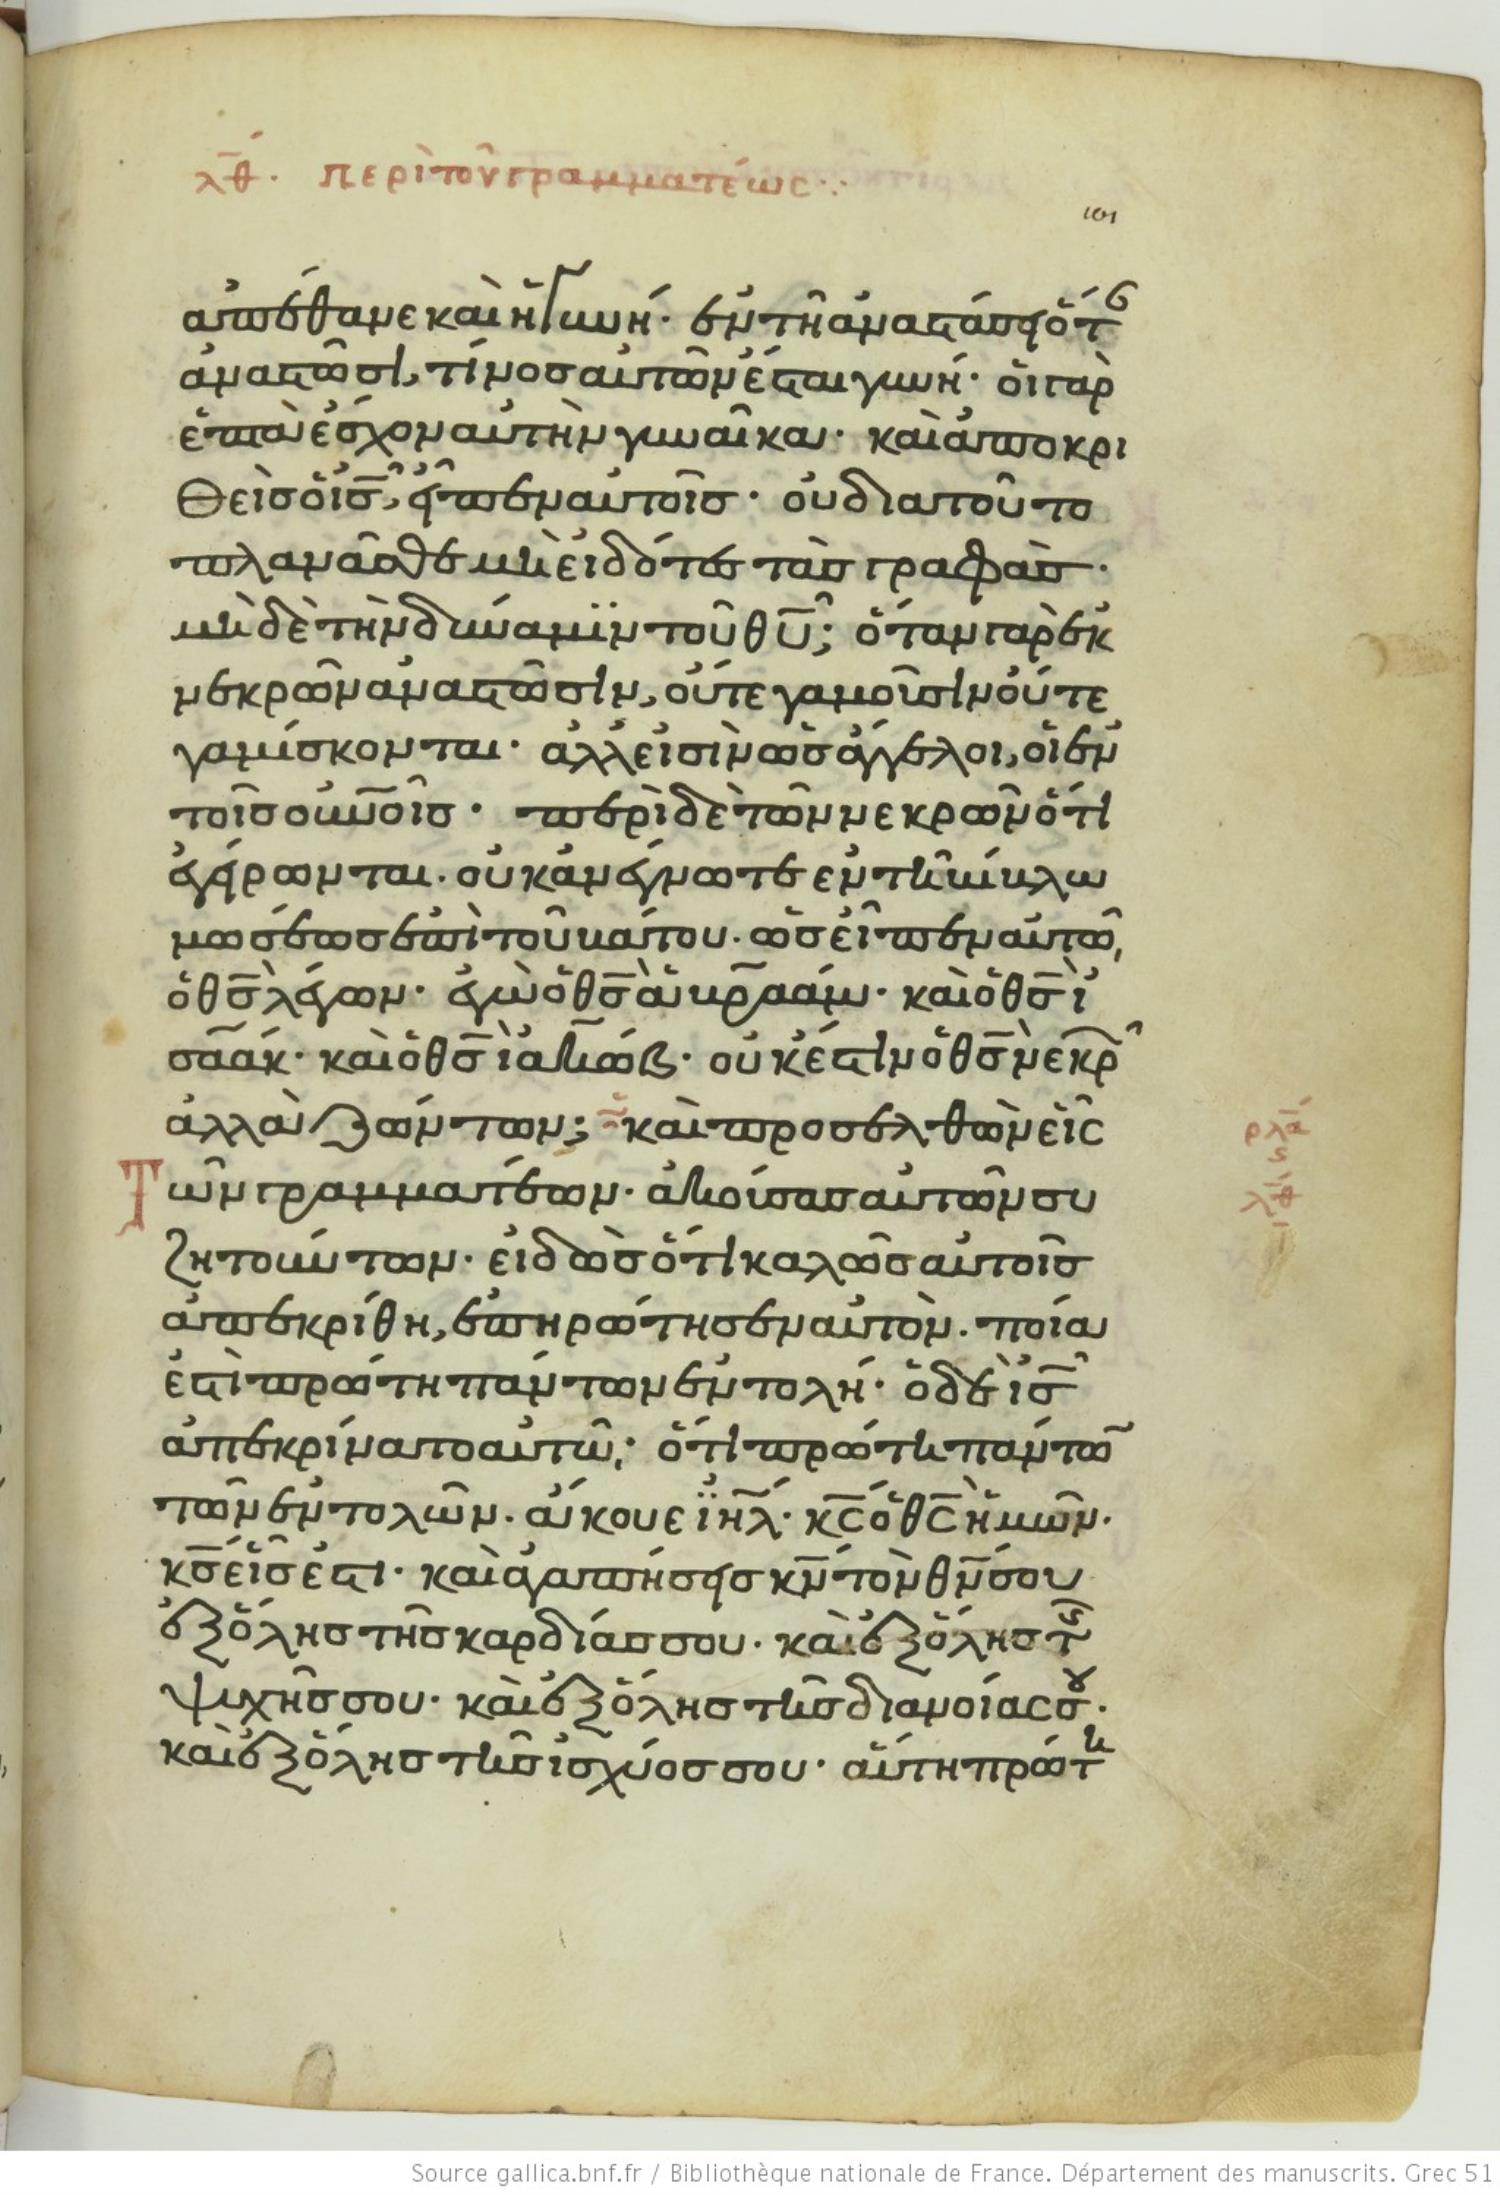 λθ. περὶ τοῦ γραμματέως
101
ἀπέθανε καὶ ἡ γυνή· ἐν τῆ ἀναστάσει ὅτ
ἀναστῶσι, τίνος αὐτῶν ἔσται γυνή· οἱ γὰρ
ἑπτὰ ἔσχον αὐτὴν γυναῖκα· καὶ ἀποκρι
θεὶς ὁ ις, εἶπεν αὐτοῖς· οὐ διατοῦτο
πλανᾶσθε μὴ εἰδότες τὰς γραφὰς·
μὴ δὲ τὴν δύναμϊν τοῦ θυ; ὅταν γὰρ ἐκ
νεκρῶν ἀναστῶσιν, οὔτε γαμοῦσιν οὔτε
γαμίσκονται· ἀλλ εἰσὶν ὡς ἄγγελοι, οἱ ἐν
τοῖς οὐνοῖς· περὶ δὲ τῶν νεκρῶν ὅτι
ἐγείρωνται. οὐκ ἀνέγνωτε ἐν τῆ βίβλω
μωσέως ἐπὶ τοῦ βάτου. ὡς εἶπεν αὐτῶ,
ὁ θς λέγων· ἐγὼ ὁ θς ἀβρααάμ· καὶ ὁ θς ἰ
σαάκ· καὶ ὁ θς ἰακώβ· οὐκ ἔστιν ὁ θς νεκρ
ἀλλὰ ζώντων; καὶ προσελθὼν εἷς
Τῶν γραμματέων· ἀκούσας αὐτῶν συ
ζητούντων· εἰδὼς ὅτι καλῶς αὐτοῖς
ἀπεκρίθη, ἐπηρώτησεν αὐτὸν. ποία
ἐστὶ πρώτη πάντων ἐντολή· ὁ δὲ ις
ἀπεκρίνατο αὐτῶ· ὅτι πρώτη πάντω
τῶν ἐντολῶν. ἄκουε ϊηλ· κς ὁ θς ἡμῶν·
κς εἷς ἐστι· καὶ ἀγαπήσεις κν τὸν θν σου
ἐξ ὅλης τῆς καρδίας σου· καὶ ἐξ ὅλης τ
ψυχῆς σου· καὶ ἐξ ὅλης τῆς διανοίας σου·
καὶ ἐξ ὅλης τῆς ἰσχύος σου· αὕτη πρώτη
ρλα
λθ
Source gallica.bnf.fr / Bibliothèque nationale de France. Département des manuscrits. Grec 51